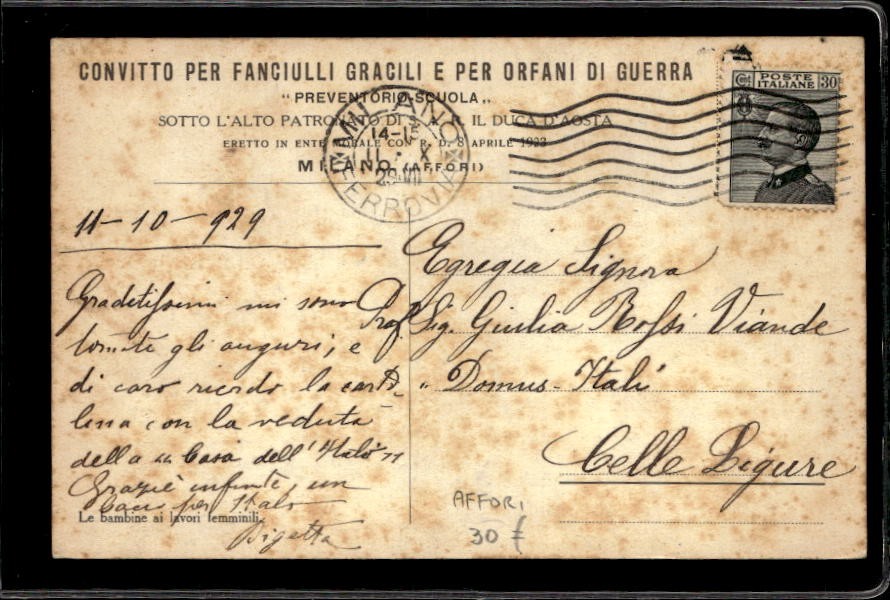 CONVITTO PER FANCIULLI GRACILI E PER ORFANI DI GUERRA
"PREVENTORIO-SCUOLA"
SOTTO L'ALTO PATRONATO DI S. A. R. IL DUCA D'AOSTA
ERETTO IN ENTE MORALE CON R. D. 8 APRILE 1923
MILANO (AFFORI)
MILANO
14-1
11 · X
29 · VII
FERROVIA
Cent
POSTE ITALIANE
30
11-10-929
Graditissimi mi sono
tornati gli auguri, e
di caro ricordo la carto
lina con la veduta
della "Casa dell'Italo"
Grazie infinite, un
per Italo
Gigetta
Egregia Signora
Prof. Sig. Giulia Rossi Viande
"Domus-Itali"
Celle Ligure
Le bambine ai lavori femminili
AFFORI
30 £